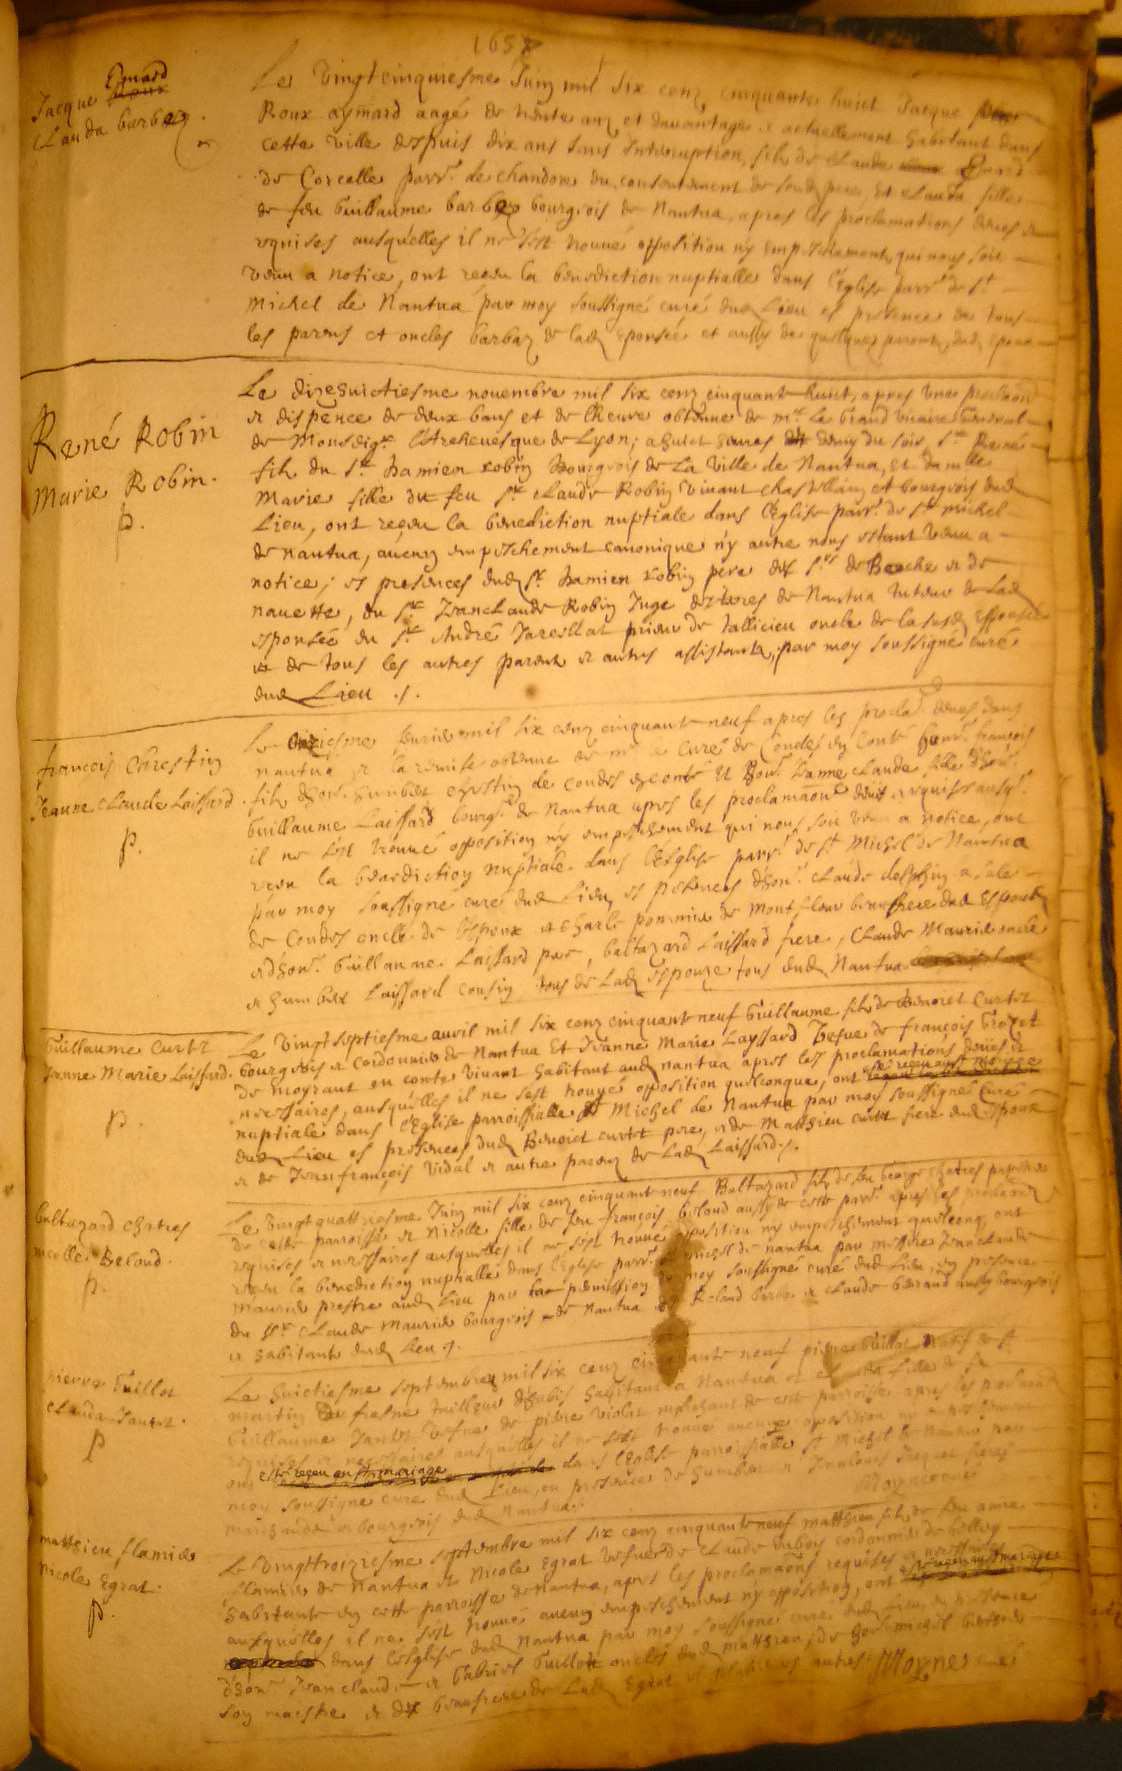 1658
Jacque Esmard
Clauda barbaz
Le vingtcinquiesme Juin mil six cenz cinquante huict Jacque
Roux aymard aagé de trente anz et davantage & actuellement habitant dans
cette ville despuis dix ans sans interruption, filz de Claude Esmard
de Corcelle parr. de chandore du consentement de sond pere, et Clauda fille
de feu Guillaume barbaz bourgeois de Nantua, apres les proclamations deues &
requises ausquelles il ne s'est trouvé opposition ny empeschement qui nous soit
venu a notice, ont receu la benediction nuptialle dans l'Eglise parr. de st
Michel de Nantua par moy soussigné curé dud Lieu es presence de tous
les parens et oncles barbaz de lad Eponsée et aussy de quelques parentz dud Epoux
René Robin
Marie Robin.
p.
Le dixehuictiesme novembre mil six cenz cinquante huict, apres une proclaon
& dispence de deux bans et de l'heure obtenue de mr. le Grand vicaire General
de Monseigr. l'Archevesque de Lyon; a huict heures demy du soir, Sr. René
filz du Sr. Damien robin Bourgeois de La ville de Nantua, et damlle
Marie fille de feu Sr. Claude Robin vivant chastellain et bourgeois dud
Lieu, ont receu la benediction nuptiale dans l'Eglise parr. de St michel
de nantua, aucun empeschement canonique n'y autre nous estant venu a
notice; es presences dud Sr. Damien robin pere des Srs de Beoche & de
navette, du Sr. JeanClaude Robin Juge des terres de Nantua tuteur de Lad
esponsée du Sr. André Jarcellat prieur de Tallicieu oncle de la susd Espousée
& de tous les autres parentz & autres assistantz, par moy soussigné curé
dud Lieu ./.
françois Chrestin
Jeanne Claude Laissard.
p.
Le onziesme fevrier mil six cenz cinquante neuf apres les procla. deues dans
nantua & la remise obtenue de mr le Curé de Condes en Conté hon. françois
filz d'hon. humbert crestin de condes en conté et hon. Jeanne Claude fille d'hon.
Guillaume Laissard bourg. de Nantua apres les proclamaons deues & requises ausq.
il ne s'est trouvé opposition n'y empeschement qui nous soit venu a notice, ont
receu la benediction nuptiale dans l'Esglise parr. de st Michel de Nantua
par moy soussigné curé dud Lieu es presences d'hon. Claude delphin
de Condes oncle de l'espoux & Charle pommier de Montfleur beaufrere dud Espoux
& d'hon. Guillaume Laissard pere, baltazard Laissard frere, Claude Maurier oncle
& humbert Laissard cousin tous de Lad espouze tous dud Nantua
Guillaume Curtet
Jeanne Marie Laissard.
p
Le vingt septiesme avril mil six cenz cinquante neuf Guillaume filz de Benoict Curtet
bourgeois & Cordonnier de Nantua et Jeanne Marie Layssard vefve de françois
de moyrant en conté vivant habitant aud nantua apres les proclamations deues &
necessaires, ausquelles il ne s'est trouvé opposition quelconque, ont
nuptiale dans l'Eglise parroissialle St Michel de Nantua par moy soussigné Curé
dud Lieu es presences dud Benoict curtet pere, & de Matthieu curtet frere dud Espoux
& de Jeanfrançois vidal & autre parentz de Lad Laissard ./.
baltazard chatres
nicolle Beloud.
p.
Le vingtquattriesme Juin mil six cenz cinquante neuf Baltazard filz de feu George chatres
de ceste parroisse & Nicolle fille de feu françois beloud aussy de ceste parr. apres les proclaons
requises & necessaires ausquelles il ne s'est trouvé opposition ny empeschement quelconq, ont
receu la benediction nuptialle dans l'Eglise parr. st michel de nantua par messire Jean Claude
Maurier prestre aud Lieu par permission de moy soussigné curé dud Lieu, en presence
du Sr Claude Maurier bourgeois de Nantua & Claude berraud aussy bourgeois
& habitantz dud Lieu ./.
pierre Guillot
Clauda Jantet.
p
Le huictiesme septembre mil six cenz cinquante neuf pierre Guillot natif de St
martin du fresne tailleur d'habis habitant a Nantua & fille de feu
Guillaume Jantet vefve de pierre violet de ceste parroisse apres les proclaons
requises & necessaires ausquelles il ne s'est trouvé aucune opposition ny empeschement
ont esté receu en st mariage dans l'Eglise parroissialle st Michel de Nantua par
moy soussigné curé dud Lieu, en presence de humbert & Jacquet freres
marchandz & bourgeois dud Nantua ./. Moyne curé
matthieu flamier
Nicole Egrat.
p.
Le vingttroiziesme septembre mil six cenz cinquante neuf matthieu filz de feu
flamier de Nantua & Nicole Egrat vefve de Claude dubois cordonnier de belley
habitante en cette parroisse de nantua, apres les proclamaons requises & necessaires
ausquelles il ne s'est trouvé aucun empeschement n'y opposition, ont esté receu en st mariage
dans l'Esglise dud Nantua par moy soussigné curé dud Lieu, en presence
d'hon. Jean claude & Gabriel Guillot oncles dud matthieu, de hon. michel
son maistre & beaufrere de Lad Egrat et plusieurs autres Moyne curé